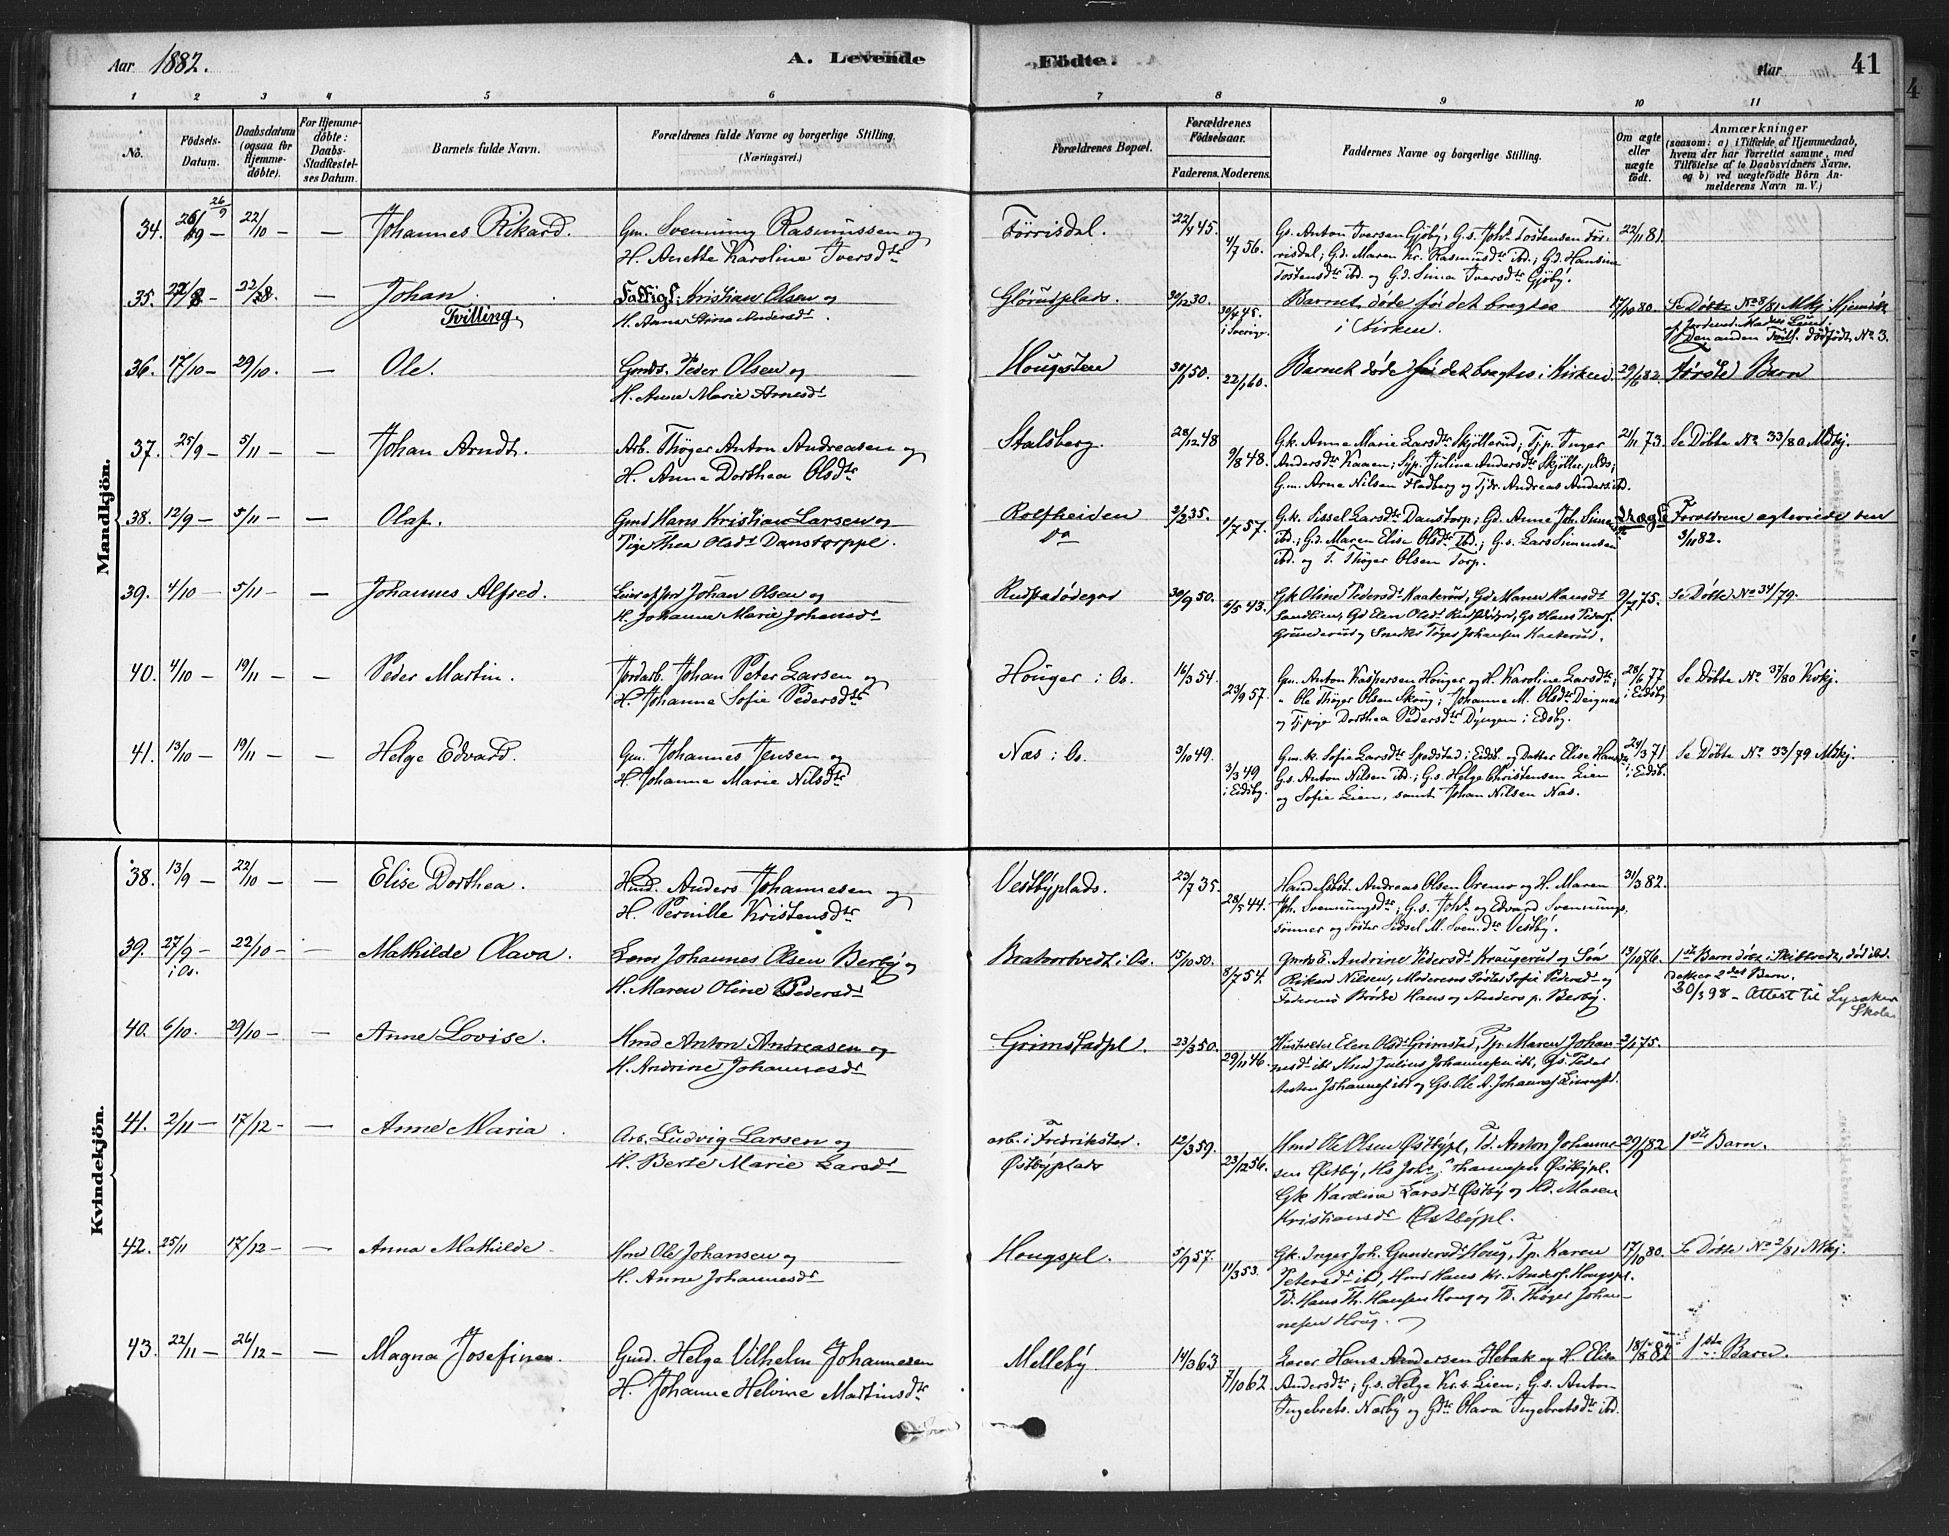 Aar 1882.
A. Levende
Fødte.
Aar
41
1 2 3 4 5 6 7 8 9 10 11
No.
Fødsels-
Datum.
Daabsdatum
(ogsaa for
Hjemme-
døbte).
For Hjemme-
døbte:
Daabs-
Stadfæstel-
ses Datum.
Barnets fulde Navn.
Forældrenes fulde Navne og borgerlige Stilling.
(Næringsvei.)
Forældrenes Bopæl.
Forældrenes
Fødselsaar.
Faderens. Moderens.
Faddernes Navne og borgerlige Stilling.
Om ægte
eller
uægte
født.
Anmærkninger
(saasom: a) i Tilfælde af Hjemmedaab,
hvem der har forrettet samme, med
Tilføielse af to Daabsvidners Navne,
og b) ved uægtefødte Børn An-
melderens Navn m. V.)
Mandkjøn.
34. 26/9 22/10 — — Johannes Rikard. Gm. Svenning Rasmussen og
H. Anette Karoline Iversdtr
Førrisdal. 22/4 45. 4/7 56.
Gs. Anton Iversen Gjøby, G.s. Johs Tostensen Før-
risdal; Gd. Maren Kr. Rasmusdtr ibd.; Gd. Hansine
Tostensdtr ibd. og G.d. Sina Iversdtr Gjøby.
22/11 81.
35. — Johan
Tvilling.
Fattigl. Kristian Olsen og
H. Anna Stina Andersdtr.
Glørudplads. 30/12 30.
i Sverige.
Barnet døde før det bragtes
i Kirken.
17/10 80.
Se Døbte No 8/81 Mkj.
Den anden Tvill. dødfødt, No 3.
36. 17/10 — 29/10. — Ole. Gmds. Peder Olsen og
H. Anne Marie Arnesdtr
Hougsten 30/1 50. 22/1 60.
Barnet døde før det bragtes i Kirken.
29/6 82. Første Barn
37. 25/9 — 5/11 — — Johan Arndt. Arb. Thøger Anton Andreasen og
H. Anne Dorthea Olsdtr
Stalsberg. 28/12 48 9/8 48.
Gk. Anne Marie Larsdtr Skjøllerud; Tjp. Inger
Andersdtr Kaaen; Syp. Juline Andersdtr Skjøller.plds;
G.m. Arne Nilsen Hadberg og Tjdr. Andreas Anders. ibd.
21/11 73. Se Døbte No 33/80 Mdkj.
38. 12/9 — 5/11 — — Olaf. Gmd Hans Kristian Larsen og
Pige Thea Olsdtr Danstorppl.
Rolfheiden
Do
2/2 35. 1/7 57.
G.k. Sissel Larsdtr Danstorp; Gd. Anne Joh. Simensdtr
ibd.; G.d. Maren Elise Olsdtr Ibd.; G.s. Lars Simensen
ibd. og T. Thøger Olsen Torp.
Uægte
Forældrene ægteviede den
3/11 82.
39. 4/10 — 5/11 — — Johannes Alfred. Johan Olsen og
H. Johanne Marie Johansdtr
Rudsødegrd 30/9 50. 6/5 43.
Gk Oline Pedersdtr Kaaterud, Gd Maren Hansdtr
Sandlien, Gd Elen Olsdtr Rudsødegrd, Gs Hans Peders.
Grunderud og Smeds Tøger Johansen Kaaterud.
9/7 75. Se Døbte No 34/79.
40. 4/10 — 19/11 — — Peder Martin. Jordarb. Johan Peter Larsen og
H. Johanne Sofie Pedersdtr
Houger i Os. 16/3 54. 23/9 57.
Gm. Anton Kaspersen Houger og H. Karoline Larsdtr;
" Ole Thøger Olsen Skoug; Johanne M. Olsdtr Deignes
og Tjpige Dorthea Pedersdtr Dyngen i Edsby.
28/6 77
i Eidsby
Se Døbte No 37/80 Kvkj.
41. 13/10 — 19/11 — — Helge Edvard. Gm. Johannes Jensen og
H. Johanne Marie Nilsdtr
Næs i Os. 3/10 49. 3/3 49
i Eidsby.
Gm.k. Sofie Larsdtr Spodstad i Eidsb. og Datter Elise Hansdtr
G.s. Anton Nilsen ibd.; G.s. Helge Christensen Lien
og Sofie Lien, samt Johan Nilsen Næs.
24/3 71
i Eidsb.
Se Døbte No 33/79 Mdkj.
Kvindekjøn.
38. 13/9 — 22/10 — — Elise Dorthea. Hmd. Anders Johannesen og
H. Pernille Kristensdtr
Vestbyplads. 23/7 35. 28/5 44.
Handelsbst. Andreas Olsen Oremo og H. Maren
Joh. Svenningsdtr; G.s. Johs og Edvard Svennings
sønner og Søster Sidsel M. Svendtr Vestby.
31/3 82.
39. 27/9 —
i Os.
22/10 — — Mathilde Olava. Johannes Olsen Berby og
H. Maren Oline Pedersdtr
Bratvortvedt i Os. 15/10 50. 8/7 54.
Gmds E. Andrine Pedersdtr Kraugerud og Søn
Rikard Nilsen, Moderens Søster Sofie Pedersdtr og
Faderens Brødre Hans og Anders p. Berby.
13/10 76.
1ste Barn døbt i Skiptvedt, død
2det Barn.
30/3 98 — Attest til Lysaker
Skole
40. 6/10. 29/10 — — Anne Lovise. Hmd Anton Andreasen og
H. Andrine Johannesdtr
Grimstadpl. 23/3 50. 29/11 46.
Husholdr Elen Olsdtr Grimstad, Tp Maren Johan-
nesdtr ibd Hmd Julius Johannesen ibd, Gs. Peder
Anton Johannes. ibd og Gs. Ole A. Johannes.
2/1 75.
41. 2/11 — 17/12 — — Anne Maria. Arb. Ludvig Larsen og
H. Berte Marie Larsdtr
arb. i Fredrikstad.
Østbyplads
12/3 59. 23/12 56.
Hmd Ole Olsen Østbypl, Td. Anton Johanne-
sen Østby, Hs Johs Johannesen Østbypl.
Gk Karoline Larsdtr Østby og Hd. Maren
Kristiansdtr Østbypl.
29/9 82 1ste Barn.
42. 25/11 17/12 — — Anna Mathilde. Hmd Ole Johansen og
H. Anne Johannesdtr
Hougspl. 5/9 57. 11/3 53.
Gk. Inger Joh. Gundersdtr Houg, Tp. Karen
Petersdtr ibd, Hmd Hans Kr. Anders. Hougspl.
Td. Hans Th. Hansen Houg og Td. Thøger Johan-
nesen Houg.
17/10 80. Se Døbte No 2/81 Mkj.
43. 22/11 — 26/12 — — Magna Josefine. Gmd. Helge Vilhelm Johannesen
H. Johanne Helvine Martinsdtr
Melleby. 14/3 63 7/10 62.
Lærer Hans Andersen Hebæk og H. Elise
Andersdtr; G.s. Helge Krs. Lien; G.s. Anton
Ingebrets. Nærby og Gdtr Olava Ingebretsdtr ibd.
18/8 82 1ste Barn.